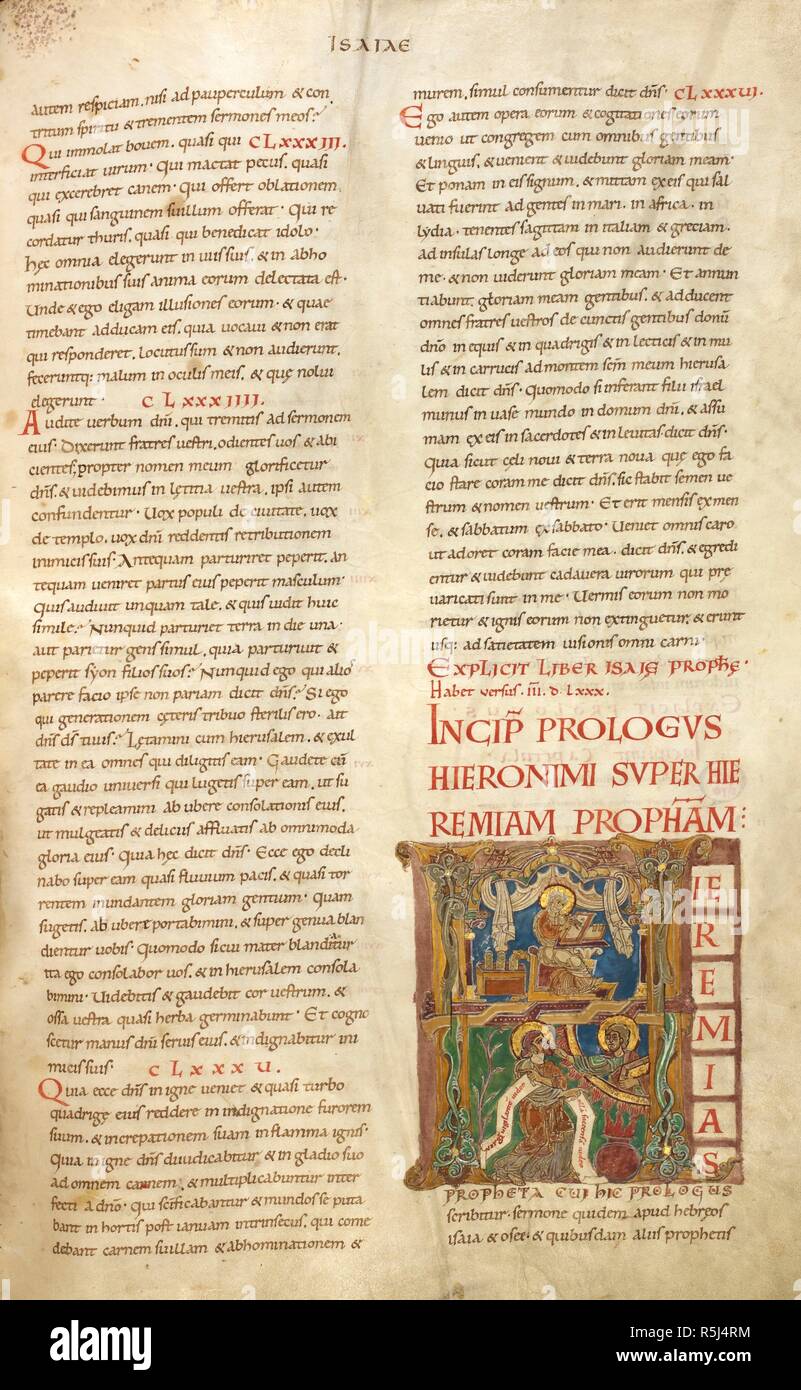 ISAIAE
autem respiciam. nisi ad pauperculum & con
tritum spiritu & trementem sermones meos?
Qui immolat bouem. quasi qui CLXXXIII.
interficiat uirum. Qui mactat pecus. quasi
qui excerebret canem. Qui offert oblationem
quasi qui sanguinem suillum offerat. Qui re
cordatur thuris. quasi qui benedicat idolo.
hęc omnia elegerunt in uiis suis. & in abho
minationibus suis anima eorum delectata est.
Unde & ego eligam illusiones eorum. & quae
timebant adducam eis. quia uocaui & non erat
qui responderet. locutus sum & non audierunt.
feceruntq; malum in oculis meis. & quę nolui
elegerunt. CLXXXIIII.
Audite uerbum dñi. qui tremitis ad sermonem
eius. Dixerunt fratres uestri. odientes uos & abi
cientes. propter nomen meum glorificetur
dñs. & uidebimus in lętitia uestra. ipsi autem
confundentur. Uox populi de ciuitate. uox
de templo. uox dñi reddentis retributionem
inimicis suis. Antequam parturiret peperit. an
tequam ueniret partus eius peperit masculum.
Quis audiuit unquam tale. & quis uidit huic
simile? Nunquid parturiet terra in die una.
aut parietur gens simul. quia parturiuit &
peperit syon filios suos? Nunquid ego qui alios
parere facio ipse non pariam dicit dñs? Si ego
qui generationem ceteris tribuo sterilis ero. ait
dñs ds tuus? Lętamini cum hierusalem. & exul
tate in ea omnes qui diligitis eam. Gaudete cū
ea gaudio uniuersi qui lugetis super eam. ut su
gatis & repleamini ab ubere consolationis eius.
ut mulgeatis & deliciis affluatis ab omnimoda
gloria eius. Quia hęc dicit dñs. Ecce ego decli
nabo super eam quasi fluuium pacis. & quasi tor
rentem inundantem gloriam gentium. Quam
sugetis. ab ubere portabimini. & super genua blan
dientur uobis. Quomodo si cui mater blanditur
ita ego consolabor uos. & in hierusalem consola
bimini. Uidebitis & gaudebit cor uestrum. &
ossa uestra quasi herba germinabunt. Et cogno
scetur manus dñi seruis eius. & indignabitur ini
micis suis. CLXXXU.
Quia ecce dñs in igne ueniet & quasi turbo
quadrigę eius reddere in indignatione furorem
suum. & increpationem suam in flamma ignis.
Quia in igne dñs diiudicabitur & in gladio suo
ad omnem carnem. & multiplicabuntur inter
fecti a dño. qui scificabantur & mundos se puta
bant in hortis post ianuam intrinsecus. qui come
debant carnem suillam & abhominationem &
murem. simul consumentur dicit dñs. CLXXXUI.
Ego autem opera eorum & cogitationes eorum
uenio ut congregem cum omnibus gentibus
& linguis. & uenient & uidebunt gloriam meam.
Et ponam in eis signum. & mittam ex eis qui sal
uati fuerint ad gentes in mari. in africa. in
lydia. tenentes sagittam in italiam & greciam.
ad insulas longe ad eos qui non audierunt de
me. & non uiderunt gloriam meam. Et annun
tiabunt gloriam meam gentibus. & adducent
omnes fratres uestros de cunctis gentibus donū
dño in equis & in quadrigis & in lecticis & in mu
lis & in carrucis ad montem scm meum hierusa
lem dicit dñs. Quomodo si inferant filii israel
munus in uase mundo in domum dñi. & assu
mam ex eis in sacerdotes & in leuitas dicit dñs.
Quia sicut cęli noui & terra noua quę ego fa
cio stare coram me dicit dñs. sic stabit semen ue
strum & nomen uestrum. Et erit mensis ex men
se. & sabbatum ex sabbato. Ueniet omnis caro
ut adoret coram facie mea. dicit dñs. & egredi
entur & uidebunt cadauera uirorum qui prę
uaricati sunt in me. Uermis eorum non mo
rietur & ignis eorum non extinguetur. & erunt
usq; ad satietatem uisionis omni carni.
EXPLICIT LIBER ISAIĘ PROPHĘ.
Habet versus. III. D. LXXX.
INCIP PROLOGVS
HIERONIMI SVPER HIE
REMIAM PROPHAM:
IEREMIAS
PROPHETA CUI HIC PROLOGUS
scribitur. sermone quidem apud hebreos
isaia & osee. & quibusdam aliis prophetis
alamy
alamy
Image ID: R5J4RM
www.alamy.com